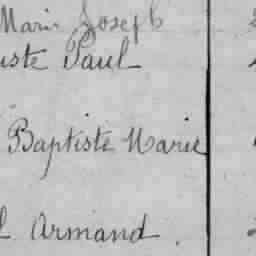 Marie Joseph
iste Paul
Baptiste Marie
l Armand.